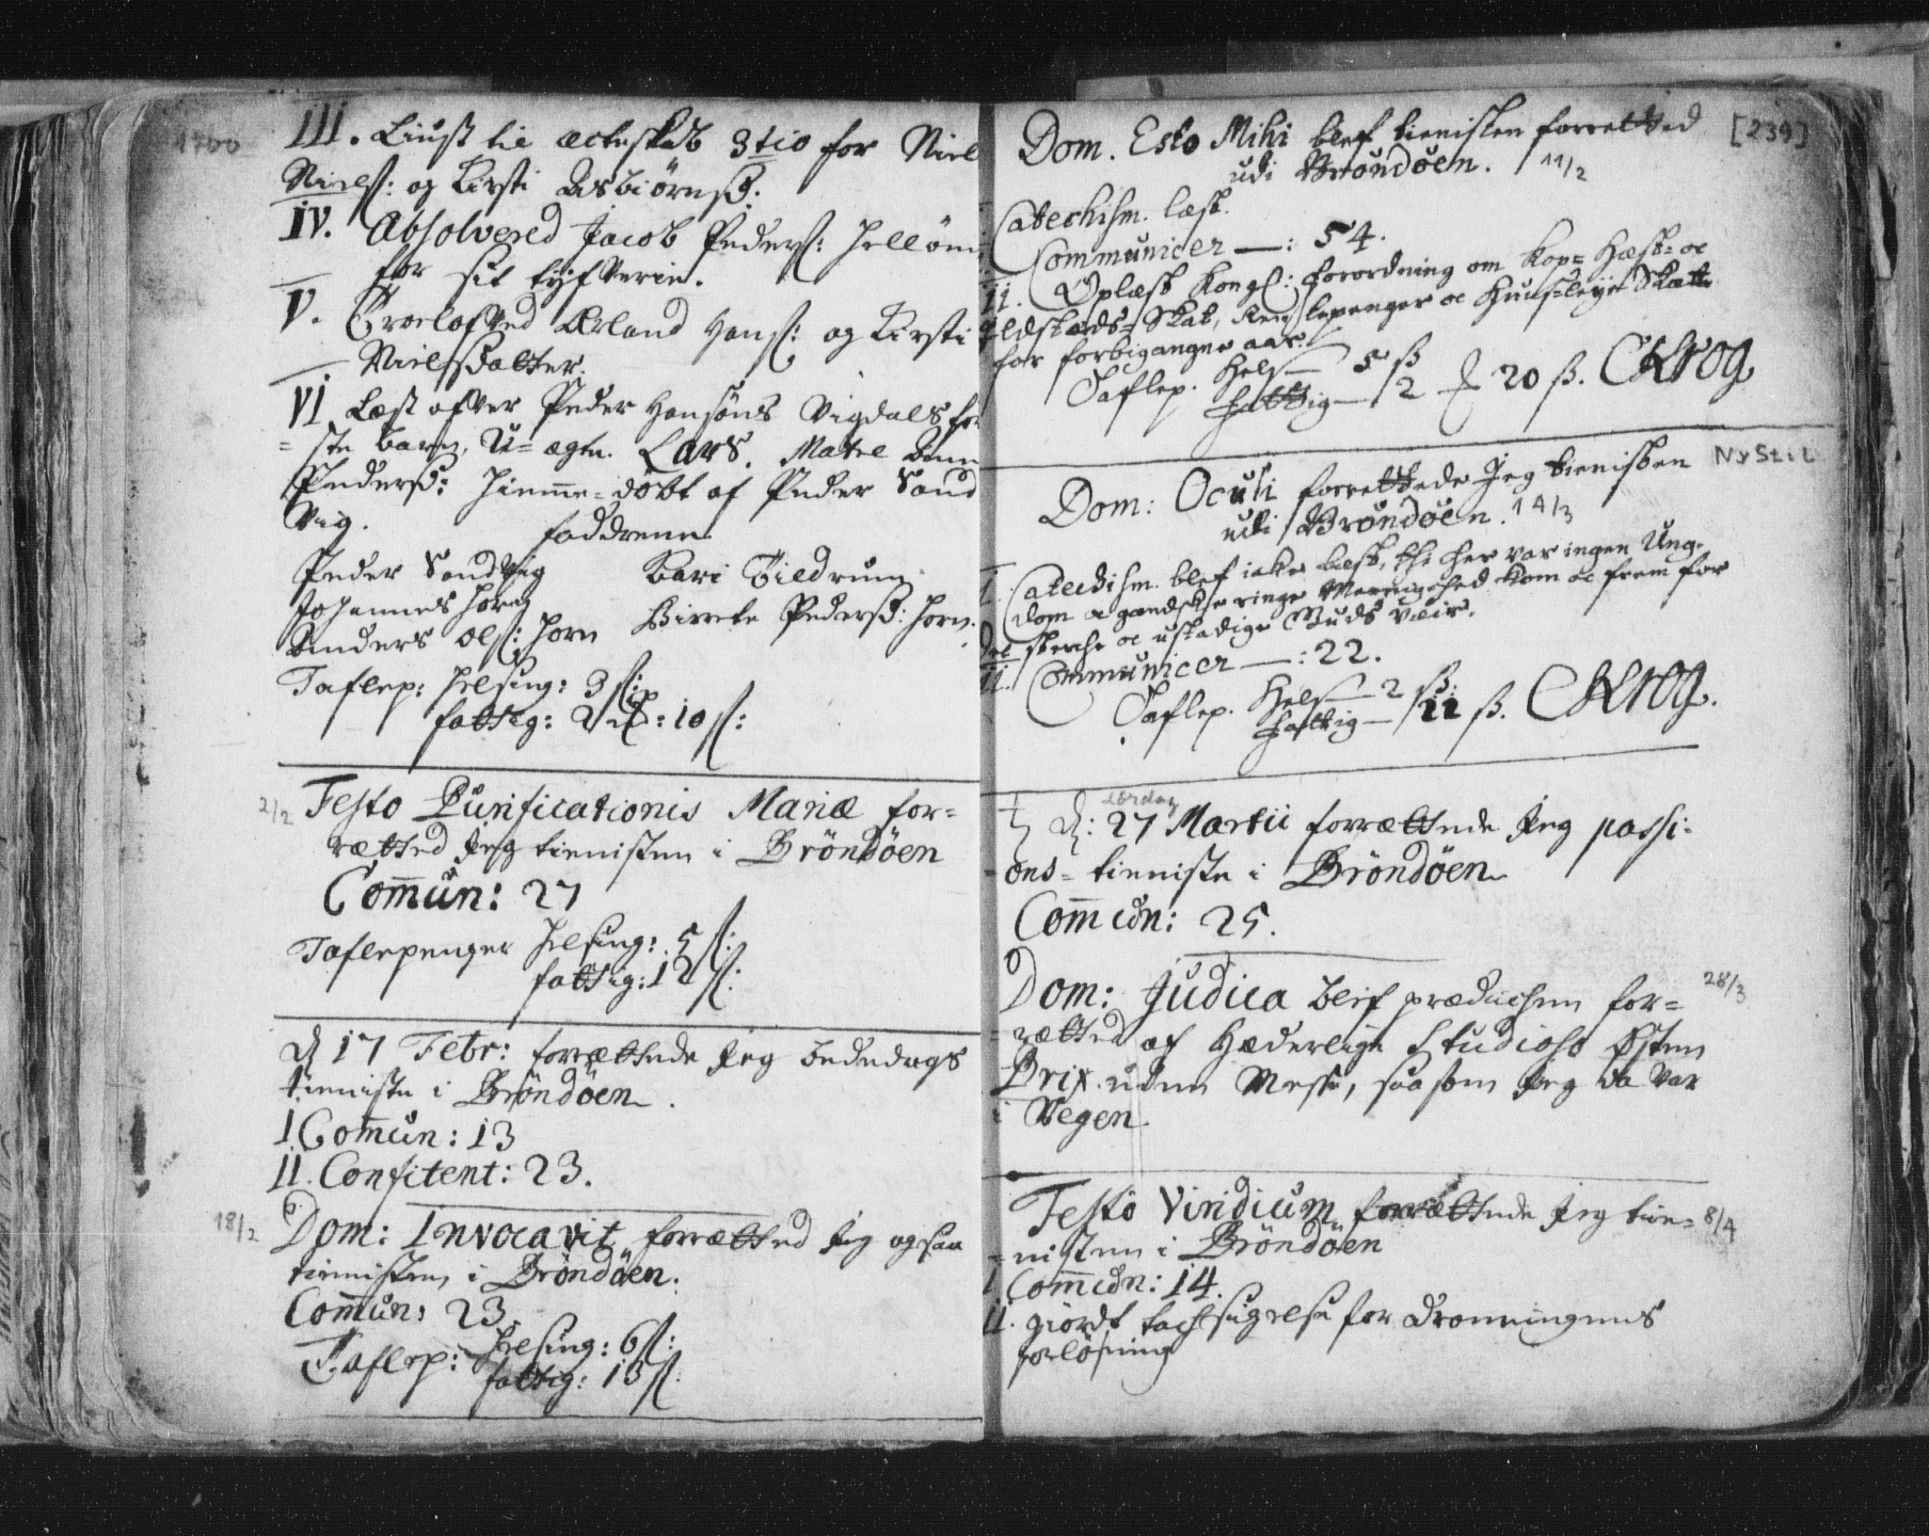 1700
III. Liust til ecteskab 3tio for Niel
Nielss: og Kirsti Asbiörnss.
IV. Absolvered Jacob Pederss: Hellöm
for sit tyfverie.
V. Troelofved Erland Hanss: og Kirsti
Nielssdatter.
VI Læst efter Peder Hansöns Vigdals för
= ste barn, U=ægte. Lars. Mater Anne
Pedersd: hieme=döbt af Peder Sand
Vig.
faddrene
Peder Sandvig Kari Tildrum
Johannes Horn
Anders Olss: Horn Birrete Pedersd: Horn.
Taflep: helsing: 3 ss:
fattig: 10 ss:
2/2 Festo Purificationis Mariæ for=
rætted Jeg tienisten i Bröndöen
Com̅un: 27
Taflepenger helsing: 5 ss:
fattig: 12 ss:
d 17 Febr: forrættede Jeg Bededags
tieniste i Bröndöen.
I Com̅un: 13
II. Confitent: 23.
18/2 Dom: Invocavit forrætted Jeg ogsaa
tienisten i Bröndöen.
Com̅un: 23
Taflep: helsing: 6 ss:
fattig: 13 ss:
[239]
Dom. Esto Mihi blef tienisten forretted
udi Bröndöen. 11/2
Catechism. læst.
Communicer —: 54.
II. Oplæst Kongl: forordning om Kop= Hæst= oc
Ildsteds= Skat, oc Skatte
for forbigangne aar.
Taflep. Hels— 5 ß
fattig— 20 ß. CKrog
Ny Stil
Dom: Oculi forrettede Jeg tienisten
udi Bröndöen. 14/3
I. Catechism. blef icke læst, thi her var ingen Ung-
dom oc gandske ringe Menighed kom oc frem for
det sterche oc ustadige Guds veir.
II. Communicer —: 22.
Taflep. Hels— 2 ß.
fattig— 11 ß. CKrog.
Lördag
d: 27 Martii forrættede Jeg passi-
ons= tieniste i Bröndöen
Com̅un: 25.
Dom: Judica blef prædichen for= 28/3
=rætted af Hæderlige Studioso Östen
Brix. uden Messe, saasom Jeg da var
i Vegen
Festo Viridium forrættede Jeg tie= 8/4
=nisten i Bröndöen
I Com̅un: 14.
II. giordt tachsigelse for Dronningens
forlösning